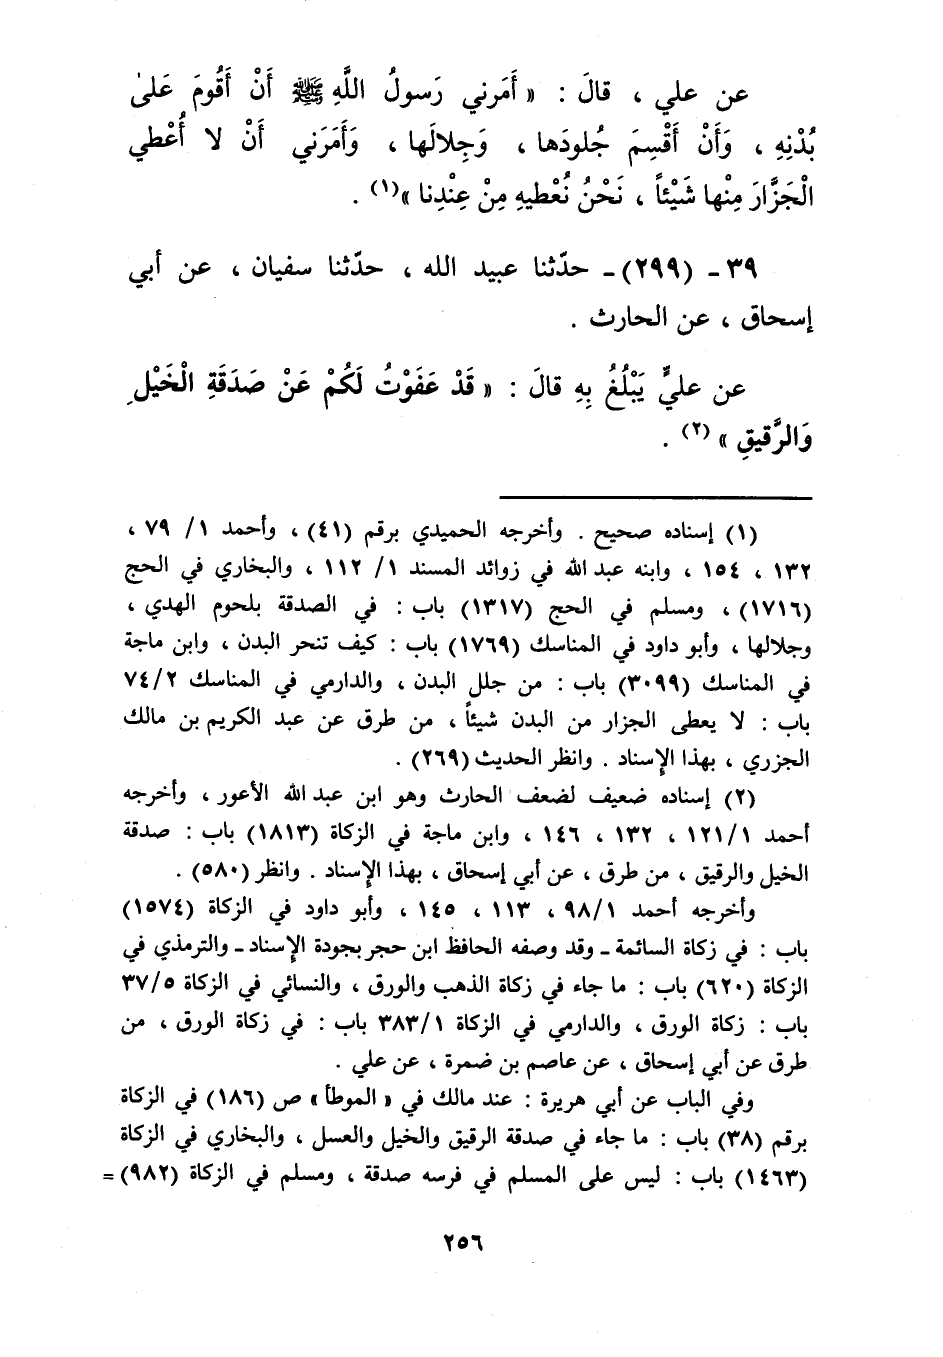 عن علي ، قالَ : « أَمَرني رَسولُ اللَّهِ ﷺ أَنْ أَقُومَ عَلىٰ
بُدْنِهِ ، وَأَنْ أَقْسِمَ جُلودَها ، وَجِلالَها ، وَأَمَرَني أَنْ لا أُعْطي
الْجَزَّارَ مِنْها شَيْئاً ، نَحْنُ نُعْطيهِ مِنْ عِنْدِنا »(١) .
٣٩ ـ (٢٩٩) ـ حدّثنا عبيد الله ، حدّثنا سفيان ، عن أبي
إسحاق ، عن الحارث .
عن عليٍّ يَبْلُغُ بِهِ قالَ : « قَدْ عَفَوْتُ لَكُمْ عَنْ صَدَقَةِ الْخَيْلِ
وَالرَّقيقِ » (٢) .
(١) إسناده صحيح . وأخرجه الحميدي برقم (٤١) ، وأحمد ١/ ٧٩ ،
١٣٢ ، ١٥٤ ، وابنه عبد الله في زوائد المسند ١/ ١١٢ ، والبخاري في الحج
(١٧١٦) ، ومسلم في الحج (١٣١٧) باب : في الصدقة بلحوم الهدي ،
وجلالها ، وأبو داود في المناسك (١٧٦٩) باب : كيف تنحر البدن ، وابن ماجة
في المناسك (٣٠٩٩) باب : من جلل البدن ، والدارمي في المناسك ٧٤/٢
باب : لا يعطى الجزار من البدن شيئاً ، من طرق عن عبد الكريم بن مالك
الجزري ، بهذا الإسناد . وانظر الحديث (٢٦٩) .
(٢) إسناده ضعيف لضعف الحارث وهو ابن عبد الله الأعور ، وأخرجه
أحمد ١٢١/١ ، ١٣٢ ، ١٤٦ ، وابن ماجة في الزكاة (١٨١٣) باب : صدقة
الخيل والرقيق ، من طرق ، عن أبي إسحاق ، بهذا الإسناد . وانظر (٥٨٠) .
وأخرجه أحمد ٩٨/١ ، ١١٣ ، ١٤٥ ، وأبو داود في الزكاة (١٥٧٤)
باب : في زكاة السائمة ـ وقد وصفه الحافظ ابن حجر بجودة الإسناد ـ والترمذي في
الزكاة (٦٢٠) باب : ما جاء في زكاة الذهب والورق ، والنسائي في الزكاة ٣٧/٥
باب : زكاة الورق ، والدارمي في الزكاة ٣٨٣/١ باب : في زكاة الورق ، من
طرق عن أبي إسحاق ، عن عاصم بن ضمرة ، عن علي .
وفي الباب عن أبي هريرة : عند مالك في « الموطأ » ص (١٨٦) في الزكاة
برقم (٣٨) باب : ما جاء في صدقة الرقيق والخيل والعسل ، والبخاري في الزكاة
(١٤٦٣) باب : ليس على المسلم في فرسه صدقة ، ومسلم في الزكاة (٩٨٢) =
٢٥٦